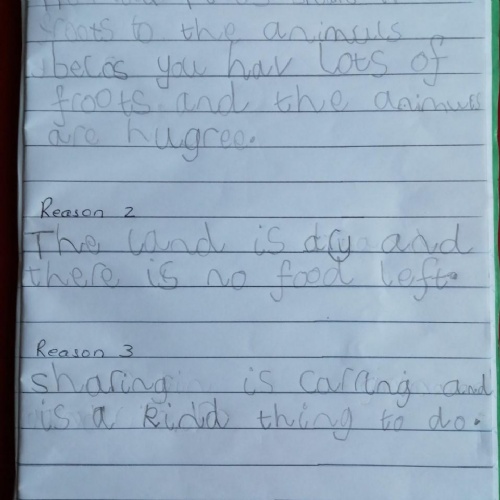 froots to the animuls
becos you hav lots of
froots and the animuls
are hugree.
Reason 2
The land is dry and
there is no food left.
Reason 3
Sharing is caring and
is a kind thing to do.